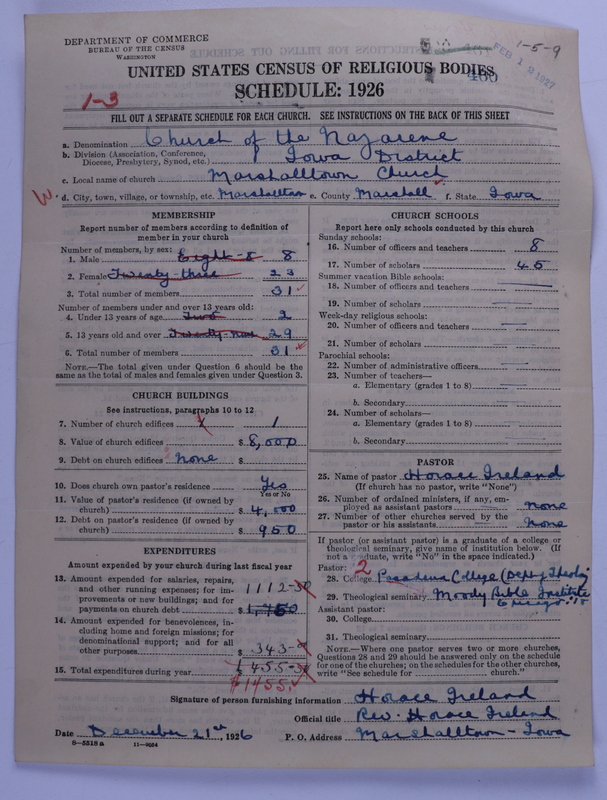 DEPARTMENT OF COMMERCE
BUREAU OF THE CENSUS
WASHINGTON
1-5-9
FEB 1 2 1927
UNITED STATES CENSUS OF RELIGIOUS BODIES
SCHEDULE: 1926
1-3
FILL OUT A SEPARATE SCHEDULE FOR EACH CHURCH. SEE INSTRUCTIONS ON THE BACK OF THIS SHEET
a. Denomination Church of the Nazarene
b. Division (Association, Conference, Diocese, Presbytery, Synod, etc.) Iowa District
c. Local name of church Marshalltown Church
d. City, town, village, or township, etc. Marshalltown e. County Marshall f. State Iowa
MEMBERSHIP
Report number of members according to definition of
member in your church
Number of members, by sex:
1. Male Eight-8 8
2. Female Twenty-three 23
3. Total number of members 31
Number of members under and over 13 years old:
4. Under 13 years of age Two 2
5. 13 years old and over Twenty-nine 29
6. Total number of members 31
NOTE.—The total given under Question 6 should be
same as the total of males and females given under Question 3.
CHURCH BUILDINGS
See instructions, paragraphs 10 to 12
7. Number of church edifices 1
8. Value of church edifices $ 8,000
9. Debt on church edifices None $
10. Does church own pastor's residence Yes
Yes or No
11. Value of pastor's residence (if owned by
church) $ 4,000
12. Debt on pastor's residence (if owned by
church) $ 950
EXPENDITURES
Amount expended by your church during last fiscal year
13. Amount expended for salaries, repairs,
and other running expenses; for im-
provements or new buildings; and for
payments on church debt $ 1112-30
14. Amount expended for benevolences, in-
cluding home and foreign missions; for
denominational support; and for all
other purposes $ 343-
15. Total expenditures during year $ 1455-30
$1455.
CHURCH SCHOOLS
Report here only schools conducted by this church
Sunday schools:
16. Number of officers and teachers 8
17. Number of scholars 45
Summer vacation Bible schools:
18. Number of officers and teachers
19. Number of scholars
Week-day religious schools:
20. Number of officers and teachers
21. Number of scholars
Parochial schools:
22. Number of administrative officers
23. Number of teachers—
a. Elementary (grades 1 to 8)
b. Secondary
24. Number of scholars—
a. Elementary (grades 1 to 8)
b. Secondary
PASTOR
25. Name of pastor Horace Ireland
(If church has no pastor, write "None")
26. Number of ordained ministers, if any, em-
ployed as assistant pastors none
27. Number of other churches served by the
pastor or his assistants none
If pastor (or assistant pastor) is a graduate of a college or
theological seminary, give name of institution below. (If
not a graduate, write "No" in the space indicated.)
Pastor: 2
28. College Pasadena College (Dept of Theology
29. Theological seminary Moody Bible Institute
Chicago Ill
Assistant pastor:
30. College
31. Theological seminary
NOTE.—Where one pastor serves two or more churches,
Questions 28 and 29 should be answered only on the schedule
for one of the churches; on the schedules for the other churches,
write "See schedule for church."
Signature of person furnishing information Horace Ireland
Official title Rev. Horace Ireland
Date December 21st, 1926 P. O. Address Marshalltown - Iowa
8-5518a 11-9034